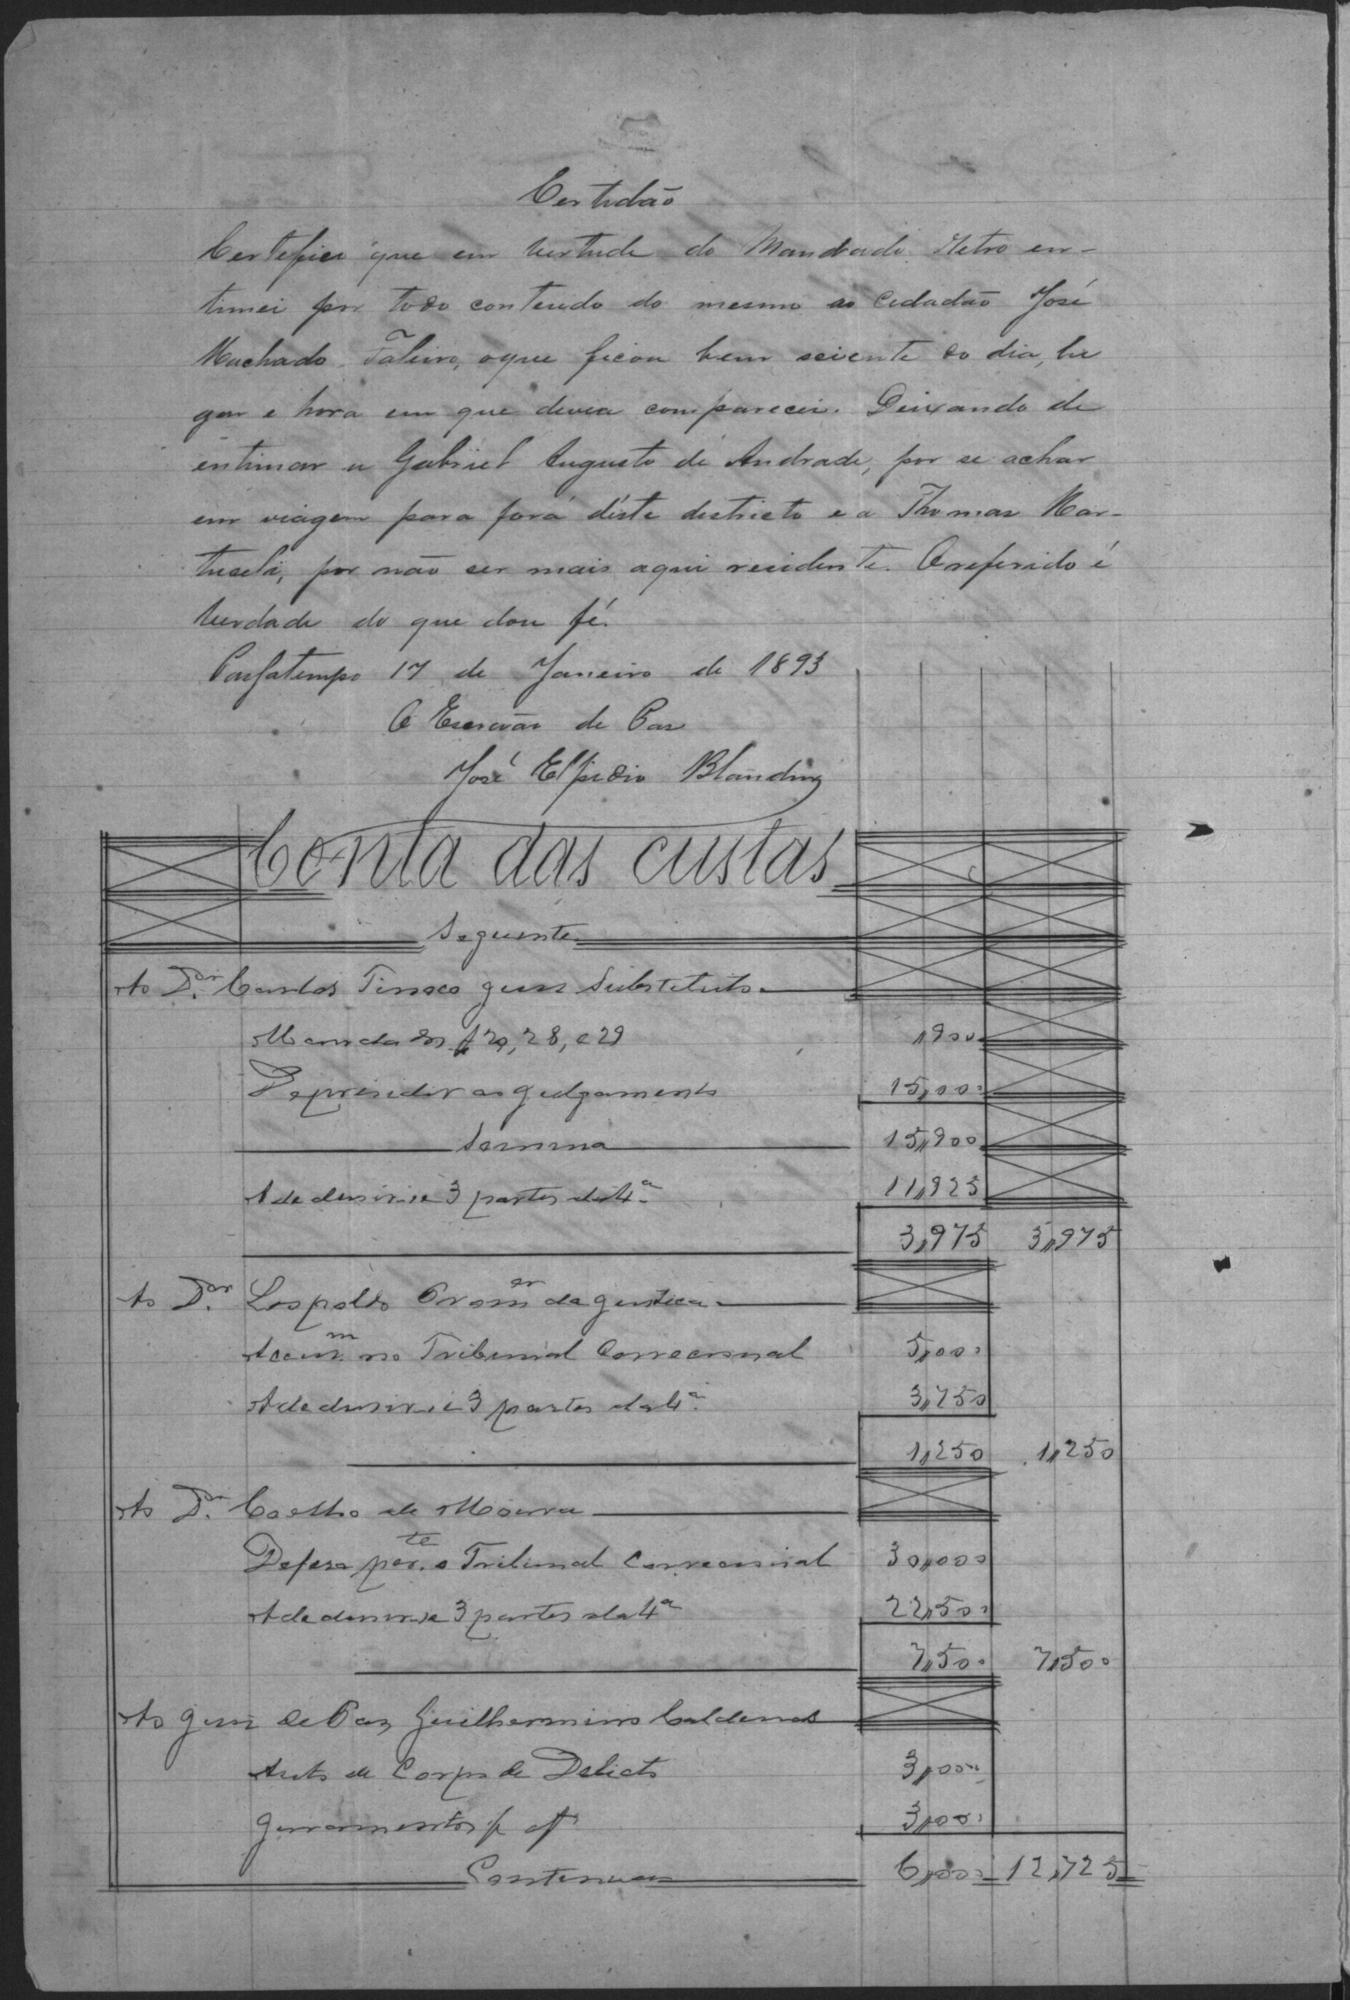 Certidão
Certefico que em vertude do Mandado retro en-
timei por todo conteudo do mesmo ao Cidadão José
Machado Taleiro, oque ficou bem sciente do dia, lu
gar e hora em que devia comparecer. Deixando de
entimar a Gabriel Augusto de Andrade, por se achar
em viagem para fóra déste destricto e a Thomas Mar-
tucelı, por não ser mais aqui residente. O referido é
verdade do que dou fé.
Passatempo 17 de Janeiro de 1893
O Escrivão de Paz
José Elpidio Blandina
Conta das custas
Seguinte
Ao Dor. Carlos Tinoco Juiz Substituto
Mandados f 20, 28, e 29 1900
De presidir ao julgamento 15,000
Somma 15,900
A dedusir-se 3 partes da 4ª 11,925
3,975 3,975
Ao Dor. Leopoldo Promor da justica
Accum no Tribunal Correccional 5,000
A dedusir-se 3 partes da 4ª 3,750
1,250 1,250
Ao Dor. Coelho de Moura
Defesa perte o Tribunal Correccional 30,000
A dedusir-se 3 partes da 4ª 22,500
7,500 7,500
Ao Juiz de Paz Guilhermino Caldernos
Auto de Corpo de Delicto 3,000
Juramentos f 3,000
Continua 6,000 12,725